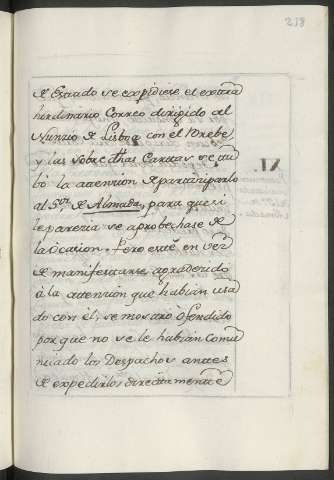 238
de Estado se expidiese el extra
hordinario Correo dirigido al
Nunzio de Lisboa con el Brebe
y las sobre dhas Cartas se tu
bó la attenzión de partiziparlo
al Sor. de Almada, para que si
le parezia se aprobechase de
la ocasion. Pero esté en vez
de manifestarse agradezido
á la attenzión que habian usa
do con él, se mostró ofendido
por que no se le habian comu
nicado los Despachos antes
de expedirlos directamente
XI.